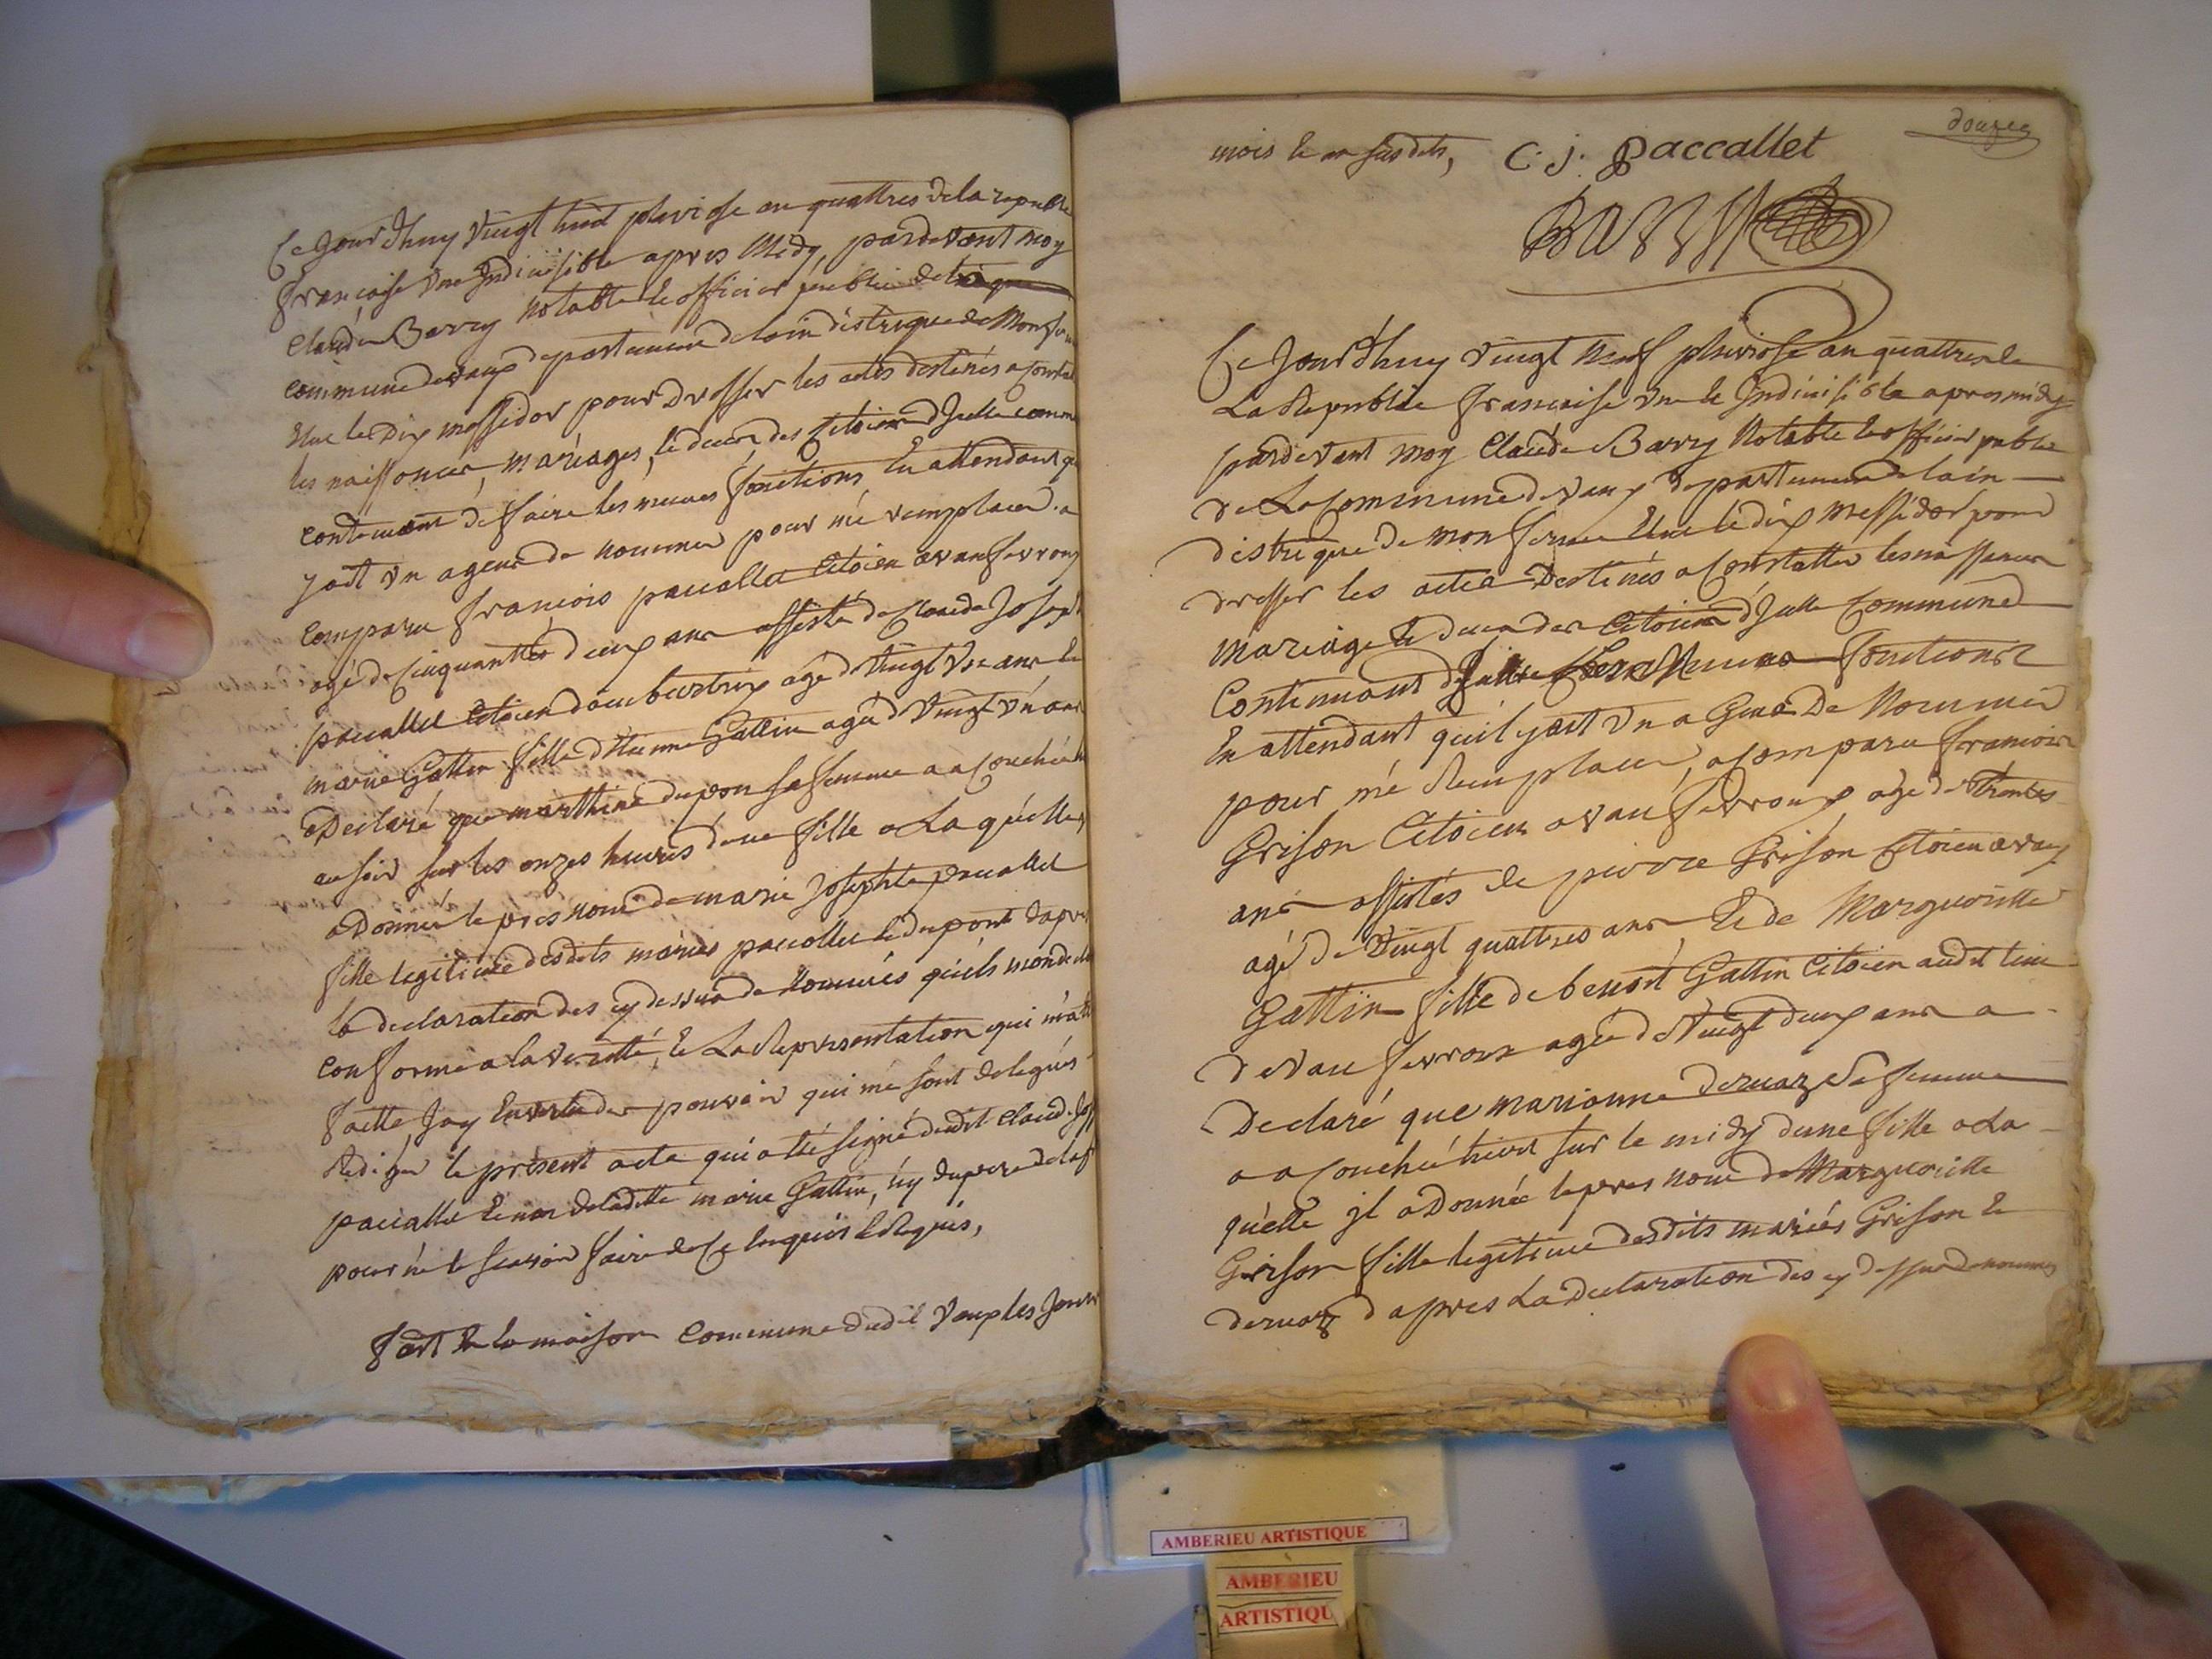 Ce Jourd'huy vingt huit pluviose an quattres de la republi
francaise une Indivisible apres Midy, pardevant moy
Claude Barry Notable et officier public de la
commune de vaux departement de lain distrique de Monfer
Elue le dix messidor pour dresser les actes destinés a constat
les naissances, mariages, et deces des Citoiens d'Jcelle comm
continuant de faire les memes fonctions En attendant qu
y oit un agent de nommer pour mé remplacer. a
comparu francois paccallet Citoien a vaux fevroux
agé de cinquantte deux ans assisté de Claude Joseph
paccallet Citoien dambertrix agé de vingt un ans et
marie Gattin fille d'Etienne Gattin agée d vingt un ans
a Declaré que marthine dupon sa femme a acouchée
au soir sur les onzes heures d'une fille a La quelle
a Donnée le pres nom de marie Josephte paccallet
fille legitime desdits mariés paccallet et dupont dapres
la declaration des cy dessus de nommés qu'ils mon de
conforme a la veritté, et La Representation qui m'a
faitte Jay En vertu des pouvoir qui me sont delegués
Rediger le présent acte qui a tté signé dudit Claude Jos
paccallet et non de ladite marie Gattin, ny du pere de
pour né le scavoir faire de ce enquis et Requis,
fait En la maison commune dudit vaux les Jour
douzea
mois et an susdits, C: j: paccallet
Barry
Ce Jourd'huy vingt neuf pluviose an quattres de
La Republie francaise une et Indivisible apres midy
pardevant moy Claude Barry Notable et officier public
de La commune de vaux departement de lain
distrique de monferme Elue le dix messidor pour
dresser les actes Destinés a Constatter les naissances
mariage et deces des Citoien d'Jcelle Commune
Continuant de faire Les Memes fonctions
En attendant qu'il y oit un a Gent De Nommer
pour mé Remplacer, a comparu francois
Grison Citoien a vau fevroux agé de Trentes
ans assistés de pierre Grison Citoien a vaux
agé de vingt quattres ans Et de Margueritte
Gattin fille de benoit Gattin Citoien audit lieu
de vau fevroux agée de vingt deux ans a
Declaré que marianne deruaz Sa femme
a acouchée hier sur le midy dune fille a La
quelle jl a Donnée le pres nom de Margueritte
Grison fille legitime desdits mariés Grison et
deruaz d apres La Declaration des cy dessus de nommes
AMBERIEU ARTISTIQUE
AMBERIEU
ARTISTIQU